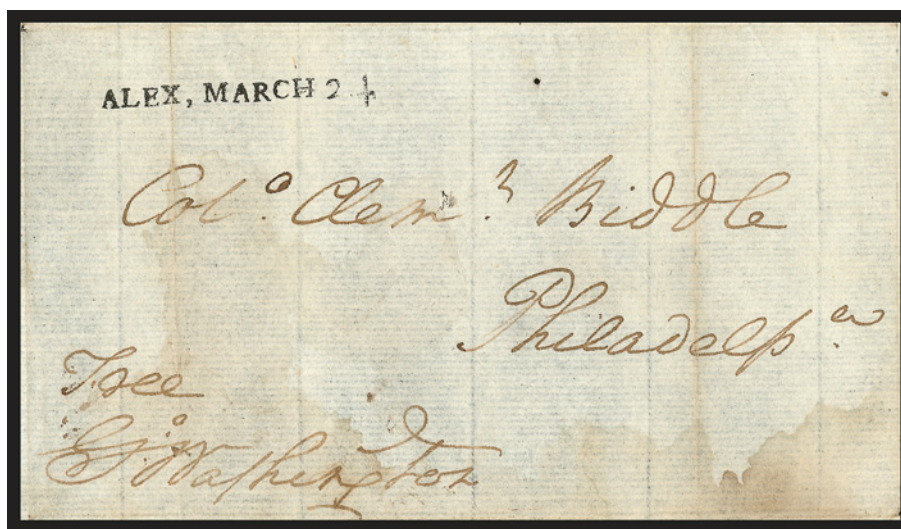 ALEX, MARCH 24
Colo. Clemt. Biddle
Philadelpa.
Free
Go Washington